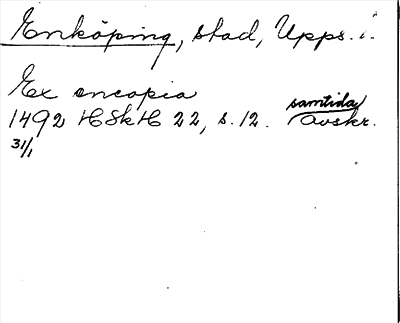 Enköping, stad, Upps. l.
Ex encopia
1492 HSkH 22, s. 12. samtida avskr.
31/1